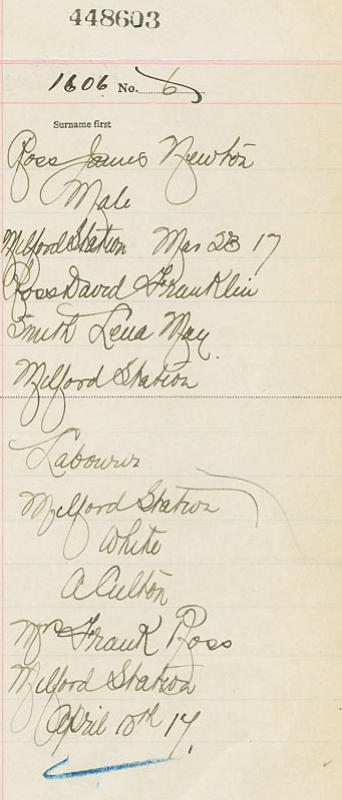 448603
1606 No. 6
Surname first
Ross James Newton
Male
Milford Station Mar 23 17
Ross David Franklin
Smith Lena May
Milford Station
Labourer
Milford Station
White
A Culton
Mrs Frank Ross
Milford Station
April 10th 17